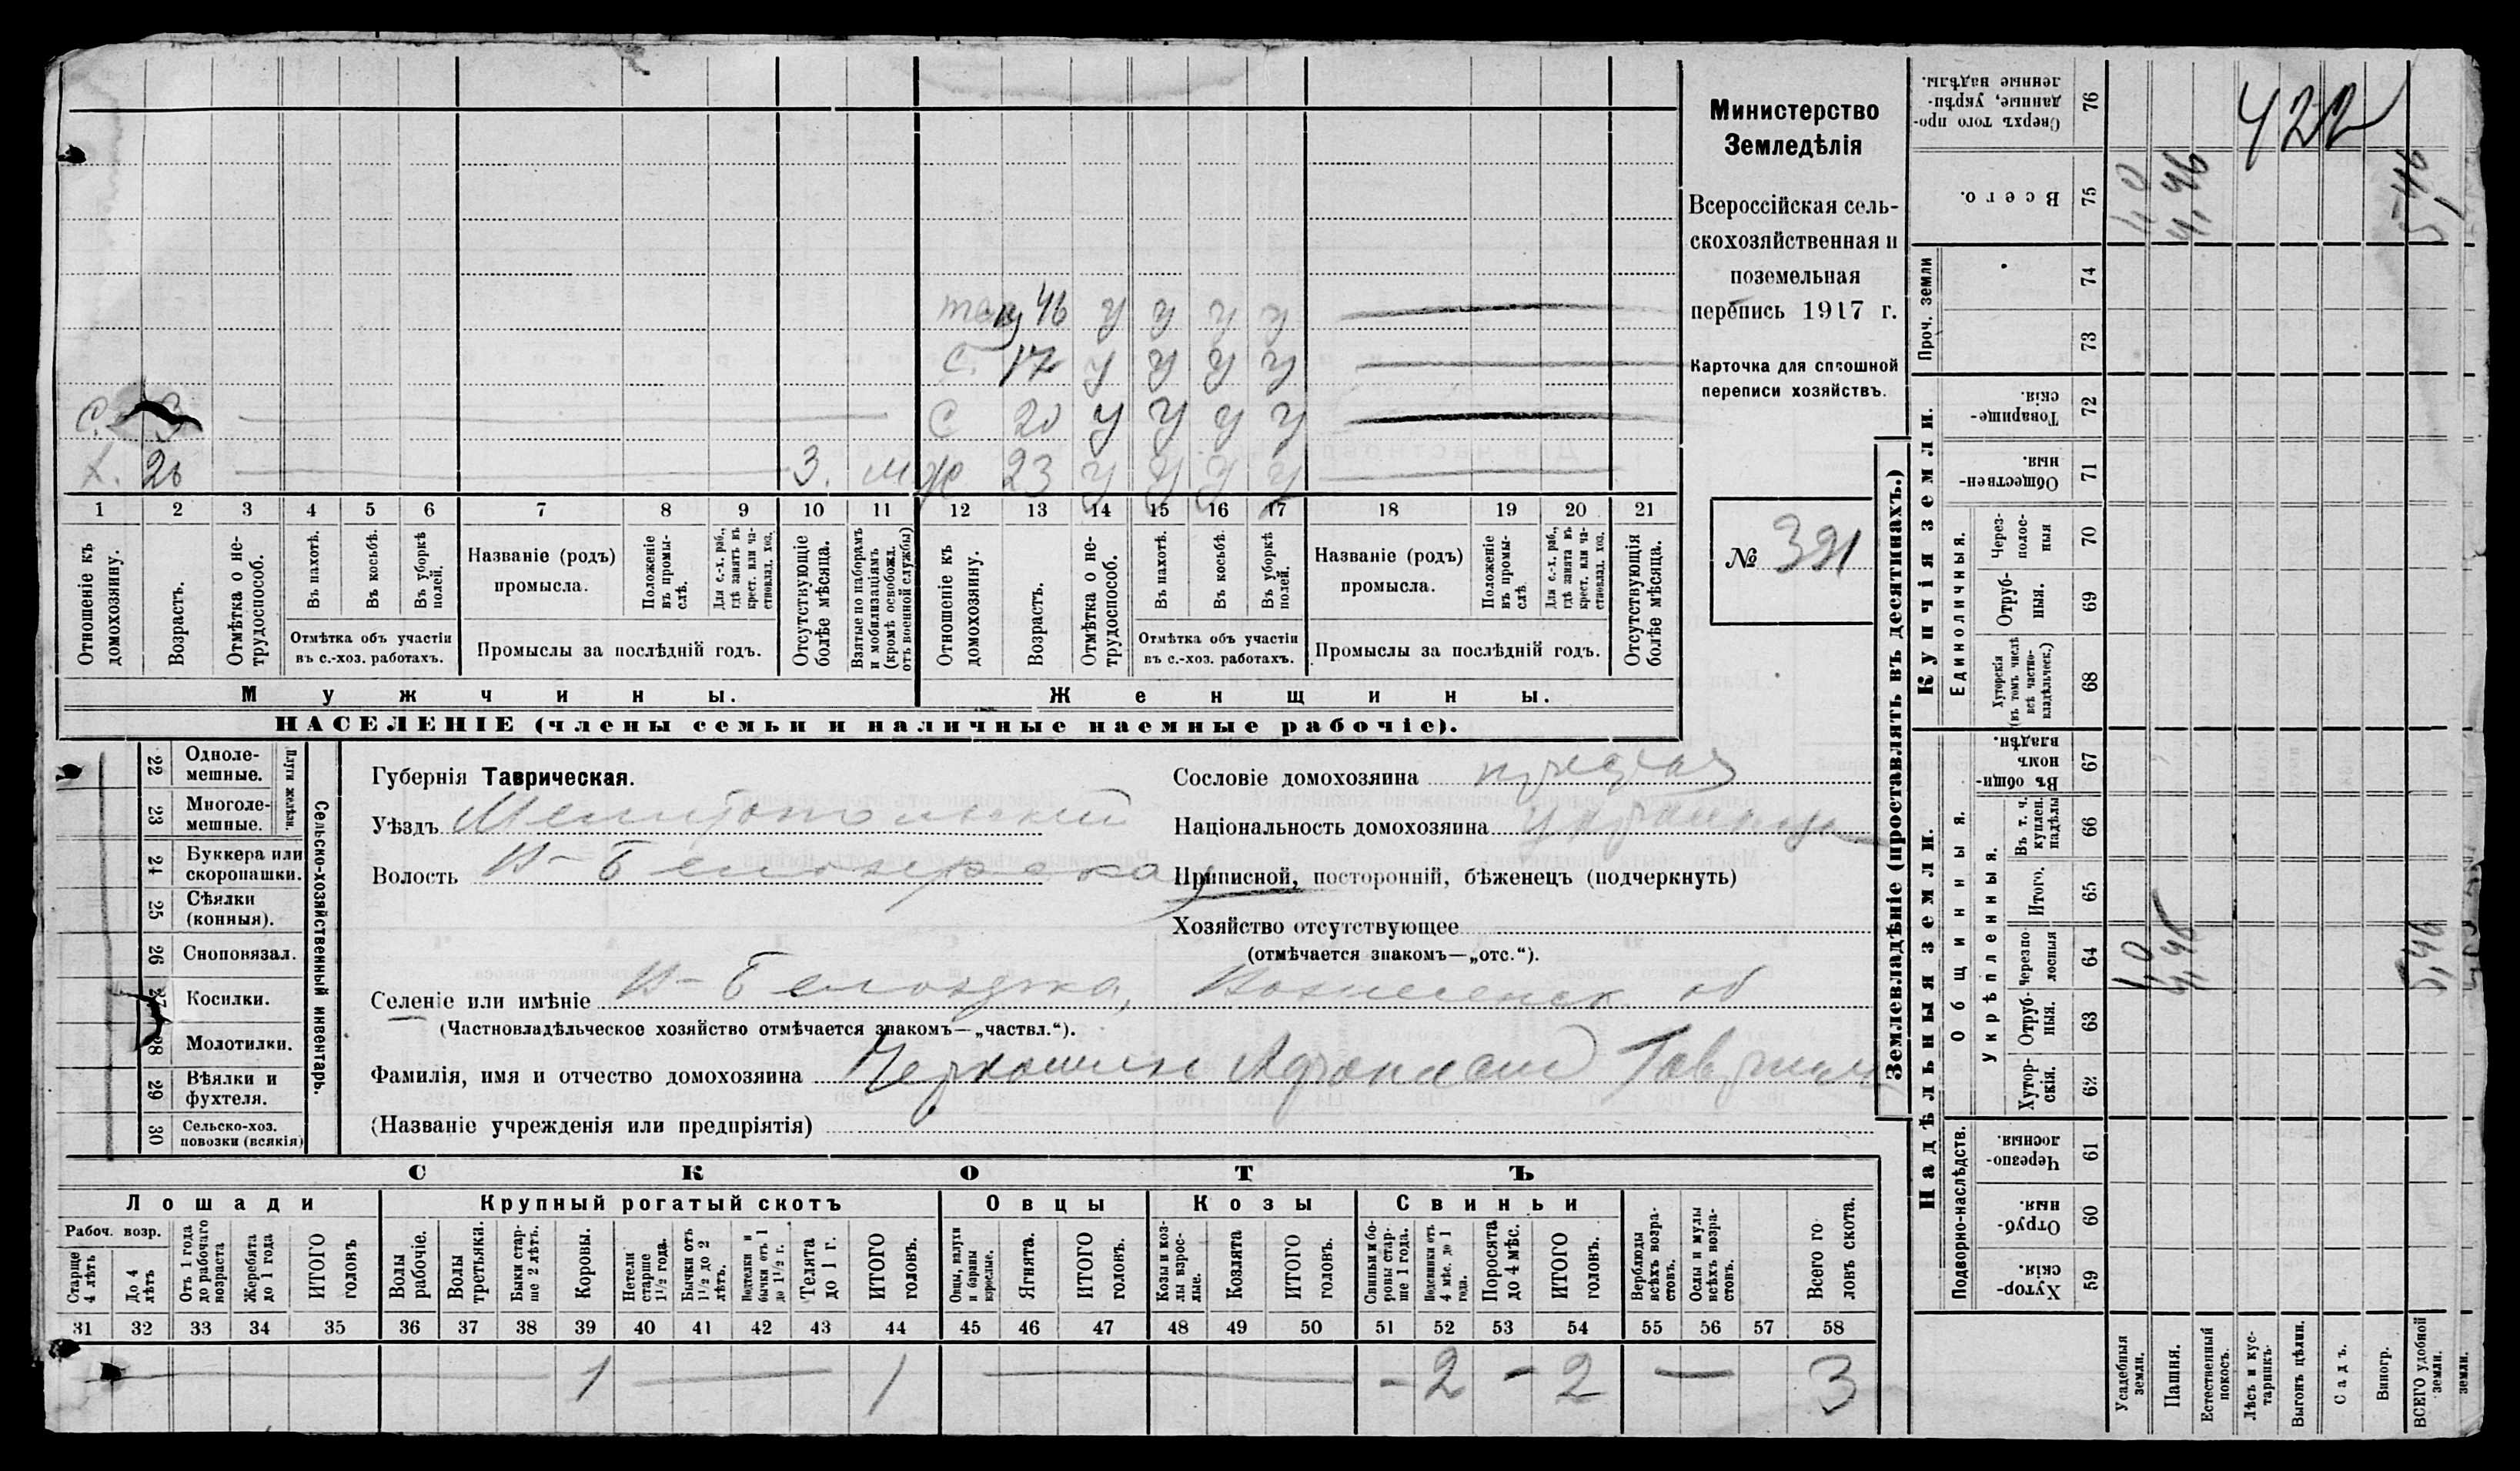 Министерство
Земледѣлія
Всероссійская сель-
скохозяйственная и
поземельная
перепись 1917 г.
Карточка для сплошной
переписи хозяйствъ.
№ 391
46 У У У У
С. 17 У У У У
С. 3 С 20 У У У У
Х. 26 3. М Ж 23 У У У У
1 2 3 4 5 6 7 8 9 10 11 12 13 14 15 16 17 18 19 20 21
Отношеніе къ домохозяину.
Возрастъ.
Отмѣтка о не-трудоспособ.
Въ пахотѣ.
Въ косьбѣ.
Въ уборкѣ полей.
Отмѣтка объ участіи
въ с.-хоз. работахъ.
Названіе (родъ)
промысла.
Положеніе въ промы-слѣ.
Для с.-х. раб., гдѣ занятъ въ крест. или ча-стновлад. хоз.
Промыслы за послѣдній годъ.
Отсутствующіе болѣе мѣсяца.
Взятые по наборамъ и мобилизаціямъ (кромѣ освобожд. отъ военной службы)
Отношеніе къ домохозяину.
Возрастъ.
Отмѣтка о не-трудоспособ.
Въ пахотѣ.
Въ косьбѣ.
Въ уборкѣ полей.
Отмѣтка объ участіи
въ с.-хоз. работахъ.
Названіе (родъ)
промысла.
Положеніе въ промы-слѣ
Для с.-х. раб., гдѣ занятъ въ крест. или ча-стновлад. хоз.
Промыслы за послѣдній годъ.
Отсутствующія болѣе мѣсяца.
Мужчины.
Женщины.
НАСЕЛЕНІЕ (члены семьи и наличные наемные рабочіе).
Сельско-хозяйственный инвентарь.
Плуги желѣзн.
22 Одноле-мешные.
23 Многоле-мешные.
24 Буккера или скоропашки.
25 Сѣялки (конныя).
26 Сноповязал.
27 Косилки.
28 Молотилки.
29 Вѣялки и фухтеля.
30 Сельско-хоз. повозки (всякія)
Губернія Таврическая.
Уѣздъ Мелитопольскій
Волость Н-Белозерская
Сословіе домохозяина
Національность домохозяина украинецъ
Приписной, посторонній, бѣженецъ (подчеркнуть)
Хозяйство отсутствующее
(отмѣчается знакомъ—„отс.“).
Селеніе или имѣніе Н-Белозерка, Вознесенск об
(Частновладѣльческое хозяйство отмѣчается знакомъ—„частвл.“).
Фамилія, имя и отчество домохозяина
(Названіе учрежденія или предпріятія)
СКОТЪ
Лошади
Крупный рогатый скотъ
Овцы
Козы
Свиньи
Рабоч. возр.
Старше 4 лѣтъ
До 4 лѣтъ
Отъ 1 года до рабочаго возраста
Жеребята до 1 года
ИТОГО головъ
Волы рабочіе.
Волы третьяки.
Быки стар-ше 2 лѣтъ.
Коровы.
Нетели старше 1½ года.
Бычки отъ 1½ до 2 лѣтъ.
Подтелки и бычки отъ 1 до 1½ г.
Телята до 1 г.
ИТОГО головъ.
Овцы, валухи и бараны взрослые.
Ягнята.
ИТОГО головъ.
Козы и коз-лы взрос-лые.
Козлята
ИТОГО головъ.
Свиньи и бо-ровы стар-ше 1 года.
Подсвинки отъ 4 мѣс. до 1 года.
Поросята до 4 мѣс.
ИТОГО головъ.
Верблюды всѣхъ возра-стовъ.
Ослы и мулы всѣхъ возра-стовъ.
Всего го-ловъ скота.
31 32 33 34 35 36 37 38 39 40 41 42 43 44 45 46 47 48 49 50 51 52 53 54 55 56 57 58
— 1 — 1 — - 2 - 2 — 3
Землевладѣніе (проставлять въ десятинахъ.)
Купчія земли.
Надѣльныя земли.
Сверхъ того про-данные, укрѣп-ленные надѣлы. 76
Всего. 75
Проч. земли 74 73
Товарище-скія. 72
Обществен-ныя. 71
Единоличныя.
Черезполос-ныя 70
Отруб-ныя. 69
Хуторскія (въ томъ числѣ всѣ частно-владѣльческ.) 68
Общинныя.
Въ общи-номъ владѣн. 67
Укрѣпленныя.
Въ т. ч. куплен. надѣлы 66
Итого. 65
Черезпо-лосныя 64
Отруб-ныя. 63
Хутор-скія. 62
Подворно-наслѣдств.
Черезпо-лосныя. 61
Отруб-ныя. 60
Хутор-скія. 59
Усадебныя земли.
Пашня.
Естественный покосъ.
Лѣсъ и кус-тарникъ.
Выгонъ цѣлин.
Садъ.
Виногр.
ВСЕГО удобной земли.
земли.
422
1,0
4,46
1,0
4,46
5,46